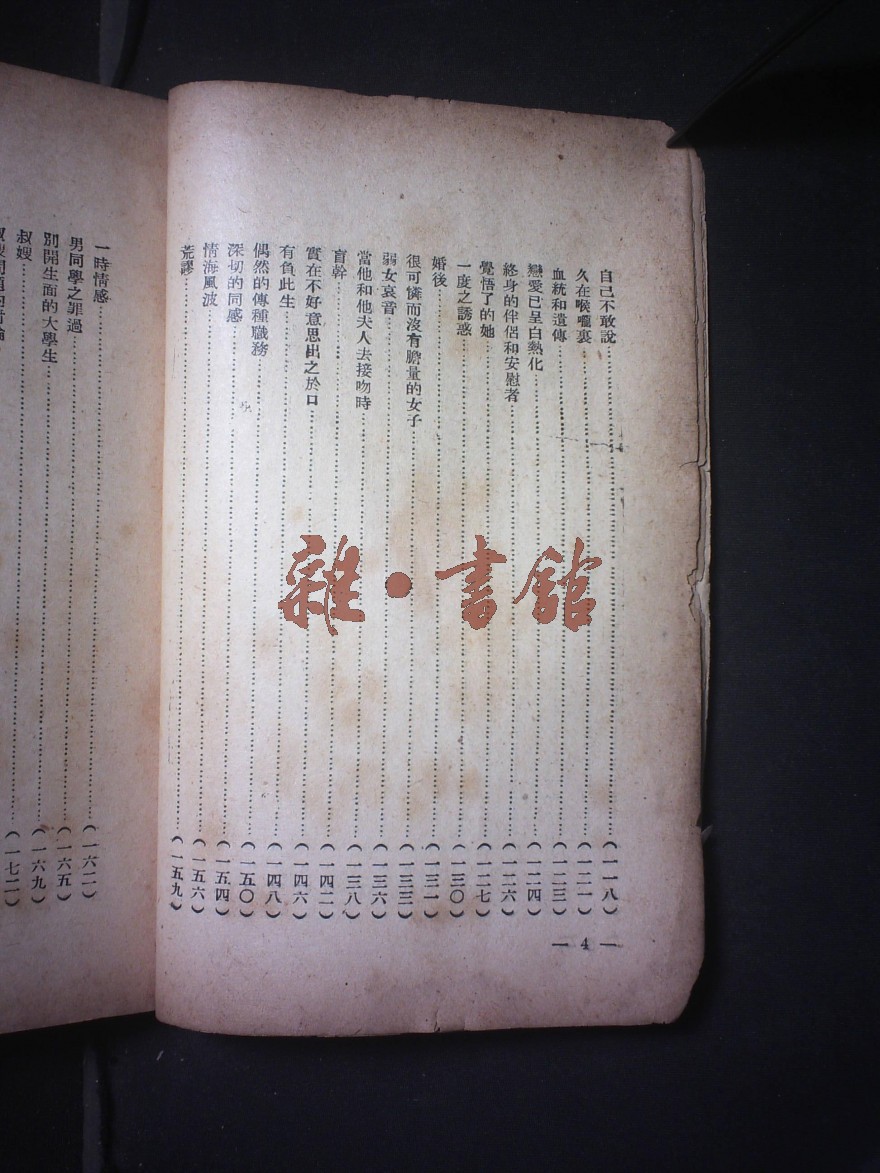 自己不敢說(一一八)
久在喉嚨裏(一二一)
血統和遺傳(一二三)
戀愛已呈白熱化(一二四)
終身的伴侶和安慰者(一二六)
覺悟了的她(一二七)
一度之誘惑(一三〇)
婚後(一三一)
很可憐而沒有膽量的女子(一三三)
弱女哀音(一三六)
當他和他夫人去接吻時(一三八)
盲幹(一四二)
實在不好意思出之於口(一四六)
有負此生(一四八)
偶然的傳種職務(一五〇)
深切的同感(一五四)
情海風波(一五六)
荒謬(一五九)
— 4 —
一時情感(一六二)
男同學之罪過(一六五)
別開生面的大學生(一六九)
叔嫂(一七二)
雜·書館